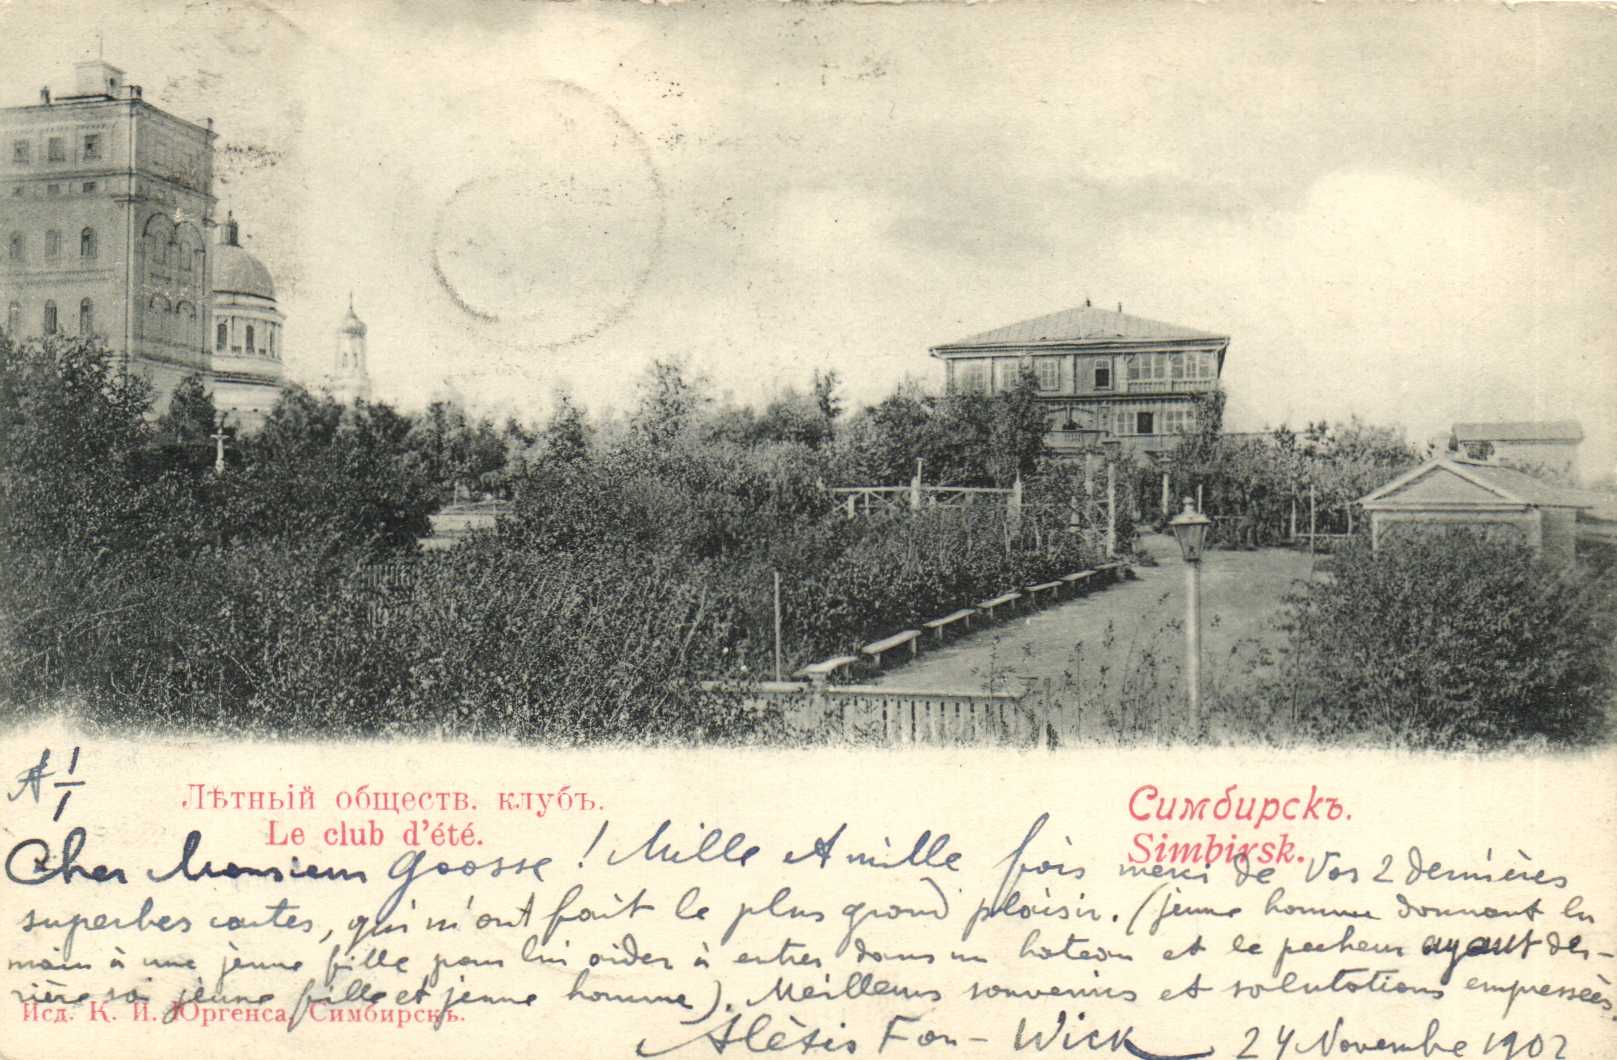 A 1/1
Лѣтный обществ. клубъ.
Le club d'été.
Симбирскъ.
Simbirsk.
Cher Monsieur Goosse! Mille et mille fois merci de Vos 2 dernières
superbes cartes, qui m'ont fait le plus grand plaisir. (jeune homme donnant la
main à une jeune fille pour lui aider à entrer dans un bateau et le pecheur ayant der-
rière soi jeune fille et jeune homme). Meilleurs souvenirs et salutations empressées.
Исд. К. И. Юргенса, Симбирскъ.
Alexis Fon-Wick 24 Novembre 1902